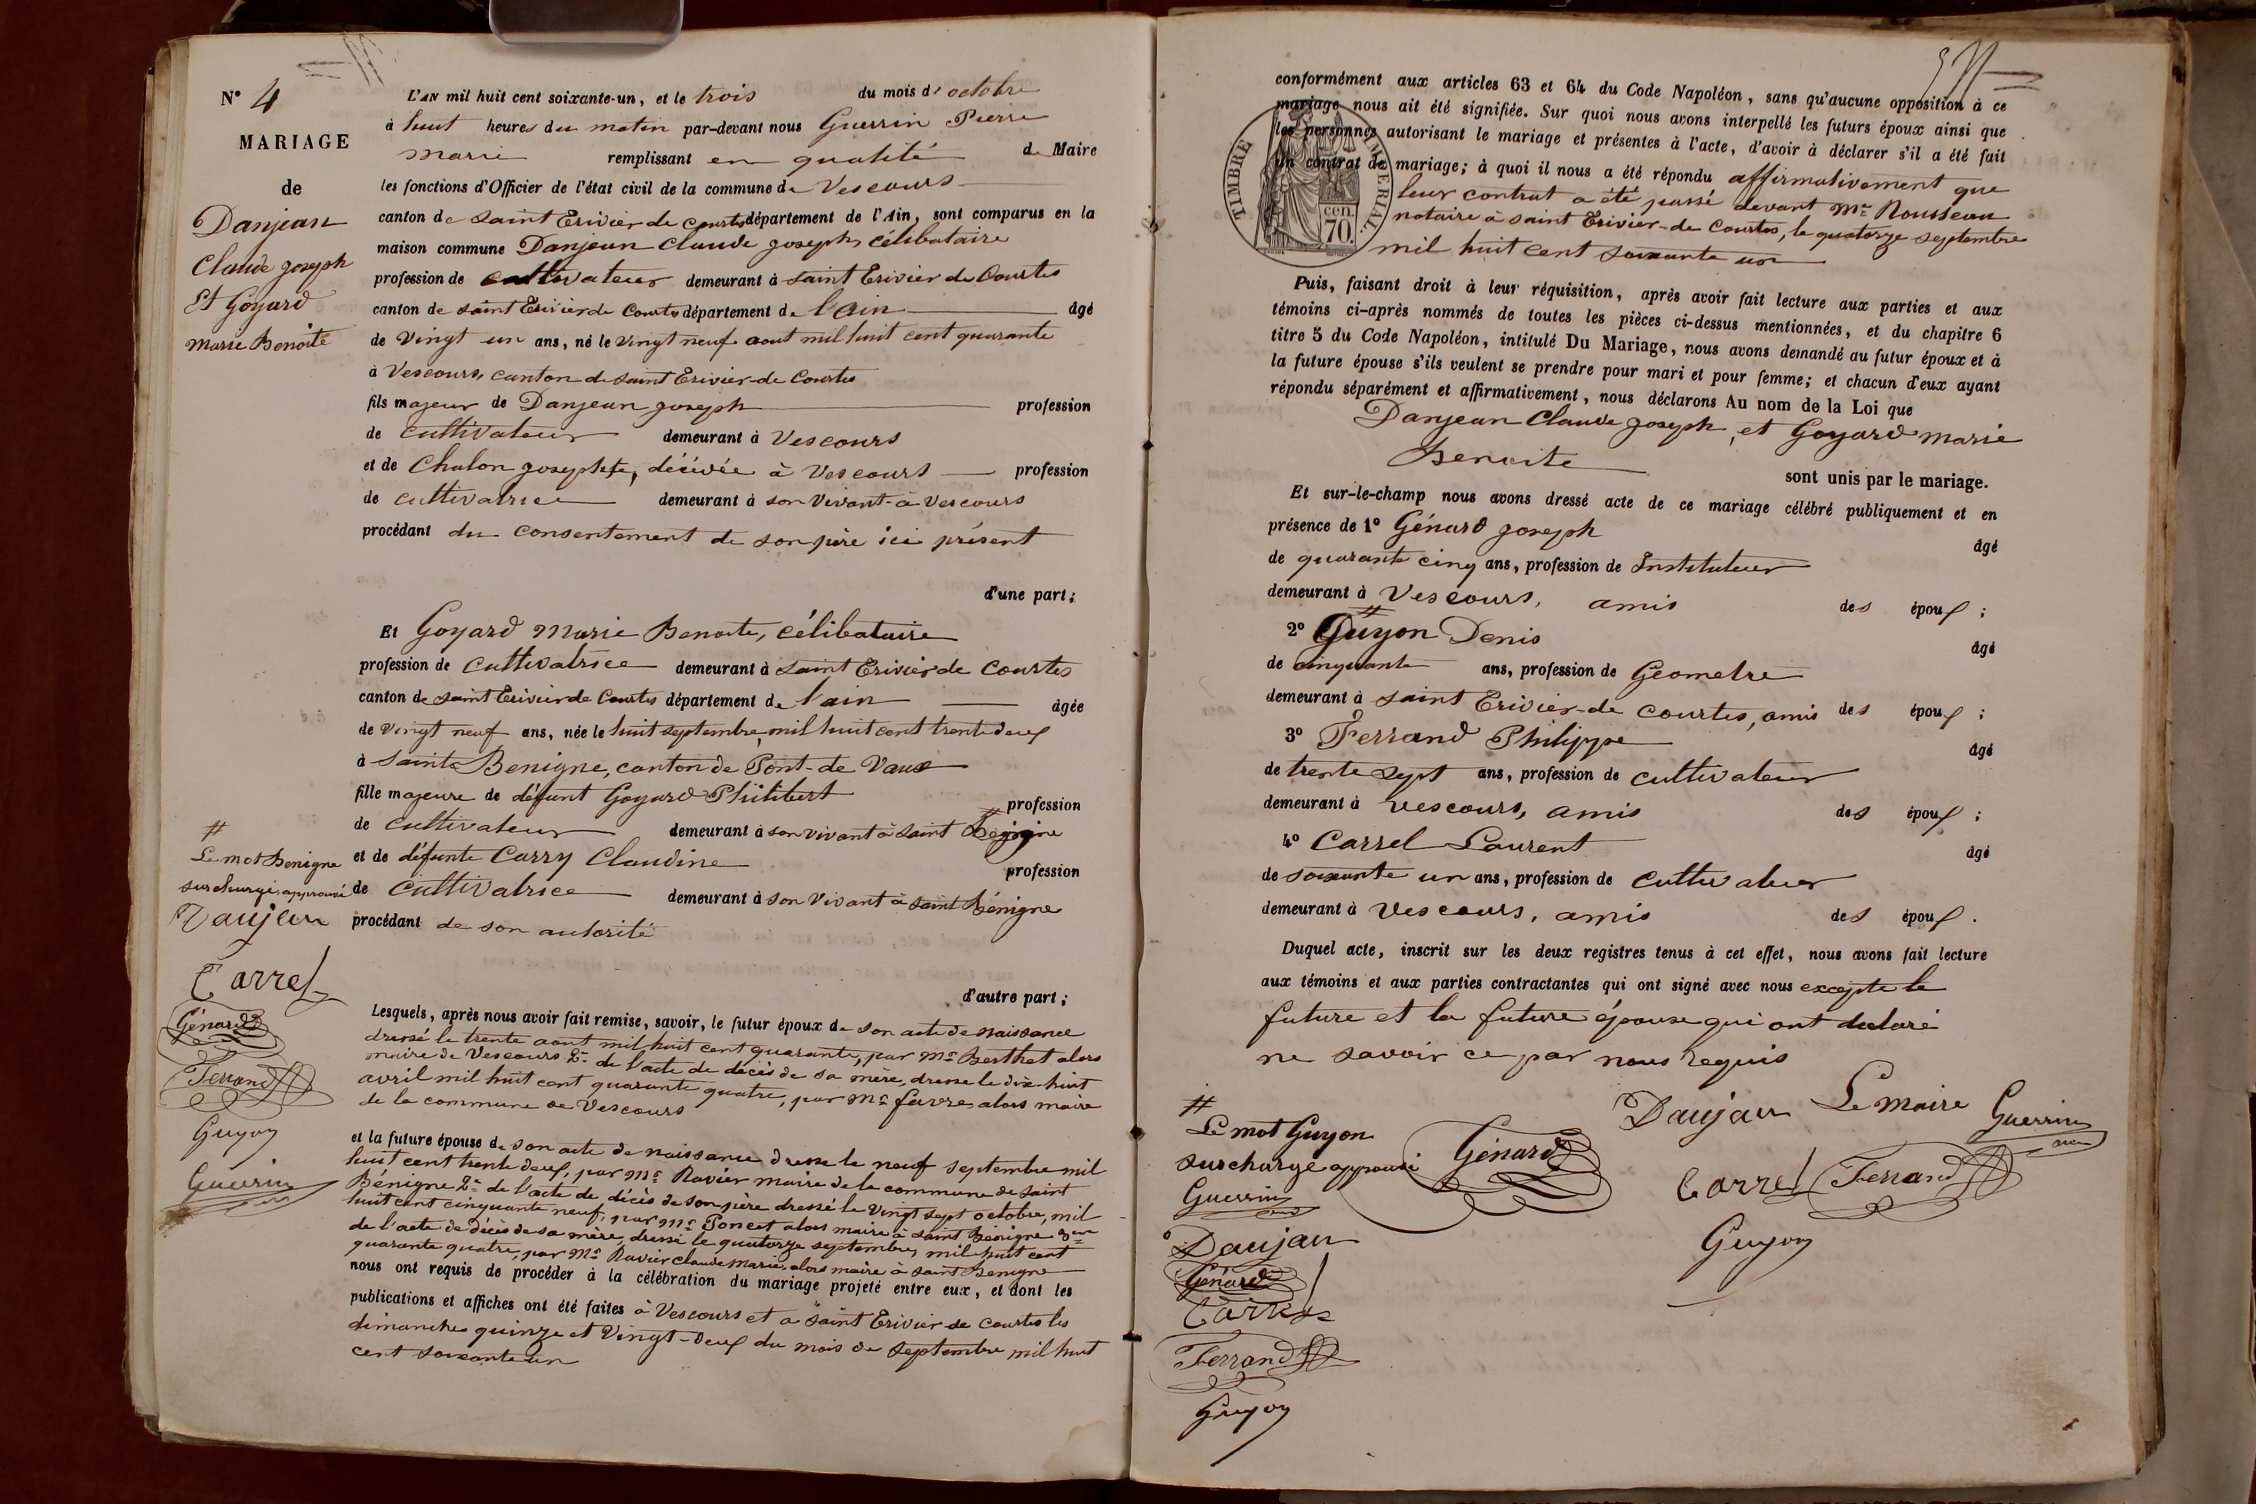 N° 4
MARIAGE
de
Danjean
Claude joseph
Et Goyard
marie Benoite
L'AN mil huit cent soixante-un, et le trois du mois d' octobre
à huit heures du matin par-devant nous Guerrin Pierre
marie remplissant en qualité de Maire
les fonctions d'Officier de l'état civil de la commune de Vescours
canton de saint Trivier de Courtes département de l'Ain, sont comparus en la
maison commune Danjean Claude joseph, célibataire
profession de cultivateur demeurant à saint Trivier de Courtes
canton de saint Trivier de Courtes département de l'Ain âgé
de vingt un ans, né le vingt neuf aout mil huit cent quarante
à Vescours, canton de saint Trivier-de Courtes
fils majeur de Danjean joseph profession
de cultivateur demeurant à Vescours
et de Chalon josephte, décédée à Vescours profession
de cultivatrice demeurant à son vivant à Vescours
procédant du consentement de son père ici présent
d'une part;
Et Goyard Marie Benoite, célibataire
profession de cultivatrice demeurant à saint Trivier de Courtes
canton de saint Trivier de Courtes département de l'ain âgée
de vingt neuf ans, née le huit septembre, mil huit cent trente deux
à Sainte Benigne, canton de Pont-de Vaux
fille majeure de défunt Goyard Philibert profession
de cultivateur demeurant à son vivant à saint Bénigne
et de défunte Carry Claudine profession
de cultivatrice demeurant à son vivant à saint Bénigne
procédant de son autorité
d'autre part;
#
Le mot Benigne
surchargé, approuvé
Danjean
Carrel
Génard
Ferrand
Guyon
Guerrin
Lesquels, après nous avoir fait remise, savoir, le futur époux de son acte de naissance
dressé le trente aout mil huit cent quarante, par Mr Berthet alors
maire de Vescours 2° de l'acte de décès de sa mère, dressé le dix-huit
avril mil huit cent quarante quatre, par Mr favre, alors maire
de la commune de Vescours
et la future épouse de son acte de naissance dressé le neuf septembre mil
huit cent trente deux, par Mr Ravier maire de la commune de saint
Bénigne 2° de l'acte de décès de son père dressé le vingt sept octobre, mil
huit cent cinquante neuf, par Mr Poncet alors maire à saint Bénigne 3eme
de l'acte de décès de sa mère, dressé le quatorze septembre, mil huit cent
quarante quatre, par Mr Ravier Claude Marie, alors maire à saint Benigne
nous ont requis de procéder à la célébration du mariage projeté entre eux, et dont les
publications et affiches ont été faites à Vescours et à saint Trivier de Courtes les
dimanches quinze et vingt-deux du mois de septembre mil huit
cent soixante un
conformément aux articles 63 et 64 du Code Napoléon, sans qu'aucune opposition à ce
mariage nous ait été signifiée. Sur quoi nous avons interpellé les futurs époux ainsi que
les personnes autorisant le mariage et présentes à l'acte, d'avoir à déclarer s'il a été fait
un contrat de mariage; à quoi il nous a été répondu affirmativement que
leur contrat a été passé devant Mr Rousseau
notaire à saint Trivier-de Courtes, le quatorze septembre
mil huit cent soixante un
TIMBRE IMPERIAL
cen.
70.
Puis, faisant droit à leur réquisition, après avoir fait lecture aux parties et aux
témoins ci-après nommés de toutes les pièces ci-dessus mentionnées, et du chapitre 6
titre 5 du Code Napoléon, intitulé Du Mariage, nous avons demandé au futur époux et à
la future épouse s'ils veulent se prendre pour mari et pour femme; et chacun d'eux ayant
répondu séparément et affirmativement, nous déclarons Au nom de la Loi que
Danjean Claude joseph, et Goyard marie
Benoite sont unis par le mariage.
Et sur-le-champ nous avons dressé acte de ce mariage célébré publiquement et en
présence de 1° Génard joseph âgé
de quarante cinq ans, profession de Instituteur
demeurant à Vescours, amis des époux ;
#
2° Guyon Denis âgé
de cinquante ans, profession de Géometre
demeurant à saint Trivier-de Courtes, amis des époux ;
3° Ferrand Philippe âgé
de trente sept ans, profession de cultivateur
demeurant à Vescours, amis des époux ;
4° Carrel Laurent âgé
de soixante un ans, profession de cultivateur
demeurant à Vescours, amis des époux .
Duquel acte, inscrit sur les deux registres tenus à cet effet, nous avons fait lecture
aux témoins et aux parties contractantes qui ont signé avec nous excepte le
future et la future épouse qui ont declaré
ne savoir ce par nous requis
Danjean Le Maire Guerrin
#
Le mot Guyon
surchargé approuvé
Génard
Carrel Ferrand
Guyon
Guerrin
Danjean
Génard
Carrel
Ferrand
Guyon